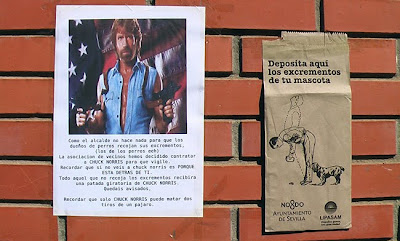 Como el alcalde no hace nada para que los
dueños de perros recojan sus excrementos,
(los de los perros eeh)
La asociacion de vecinos hemos decidido contratar
a CHUCK NORRIS para que vigile.
Recordar que si no veis a chuck norris es PORQUE
ESTA DETRAS DE TI.
Todo aquel que no recoja los excrementos recibira
una patada giratoria de CHUCK NORRIS.
Quedais avisados.
Recordar que solo CHUCK NORRIS puede matar dos
tiros de un pajaro.
Deposita aquí
los excrementos
de tu mascota
NO8DO
AYUNTAMIENTO
DE SEVILLA
LIPASAM